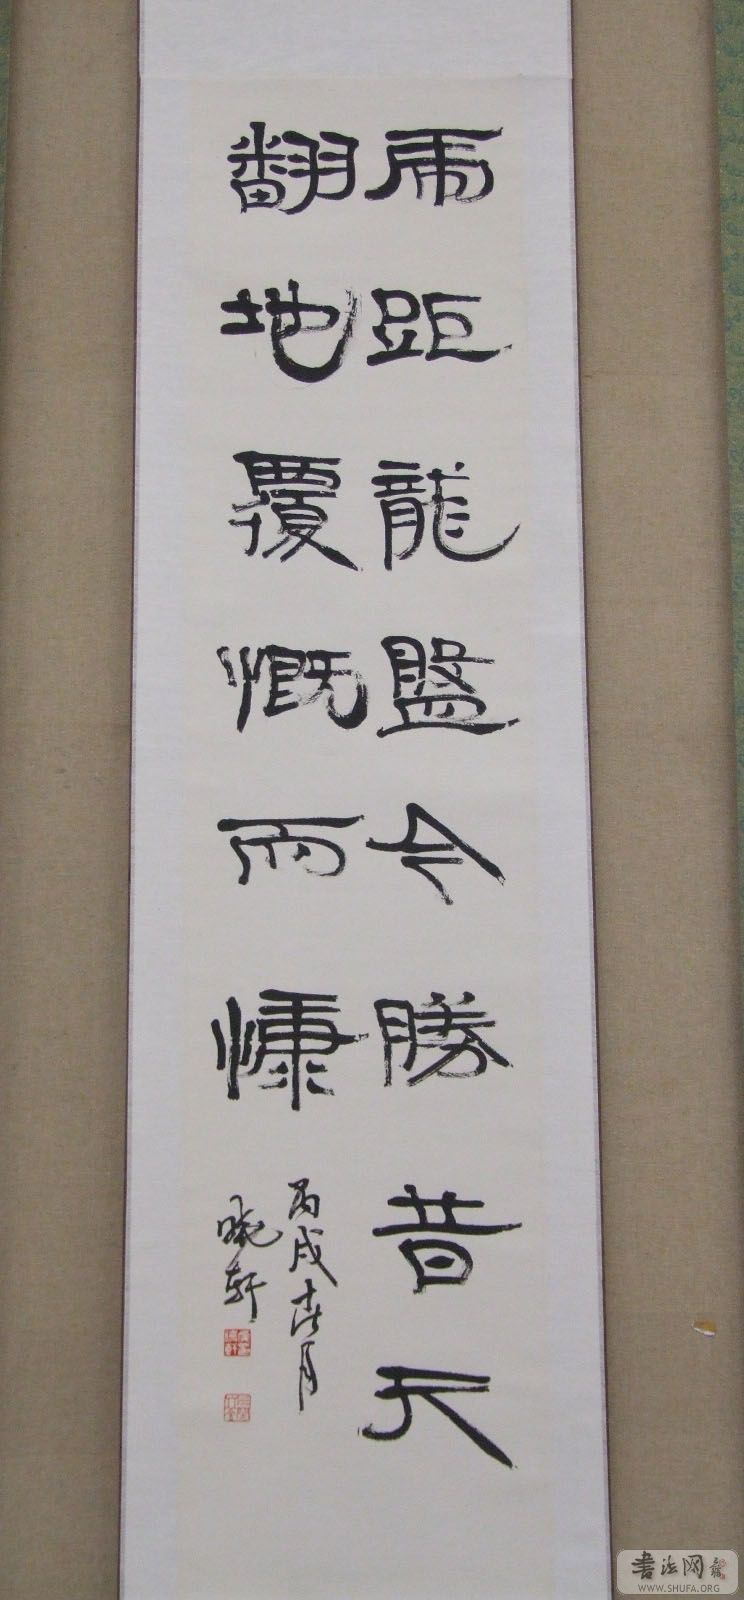 虎距龍盤今勝昔天
翻地覆慨而慷
丙戌 月
晓轩
書法网
WWW.SHUFA.ORG